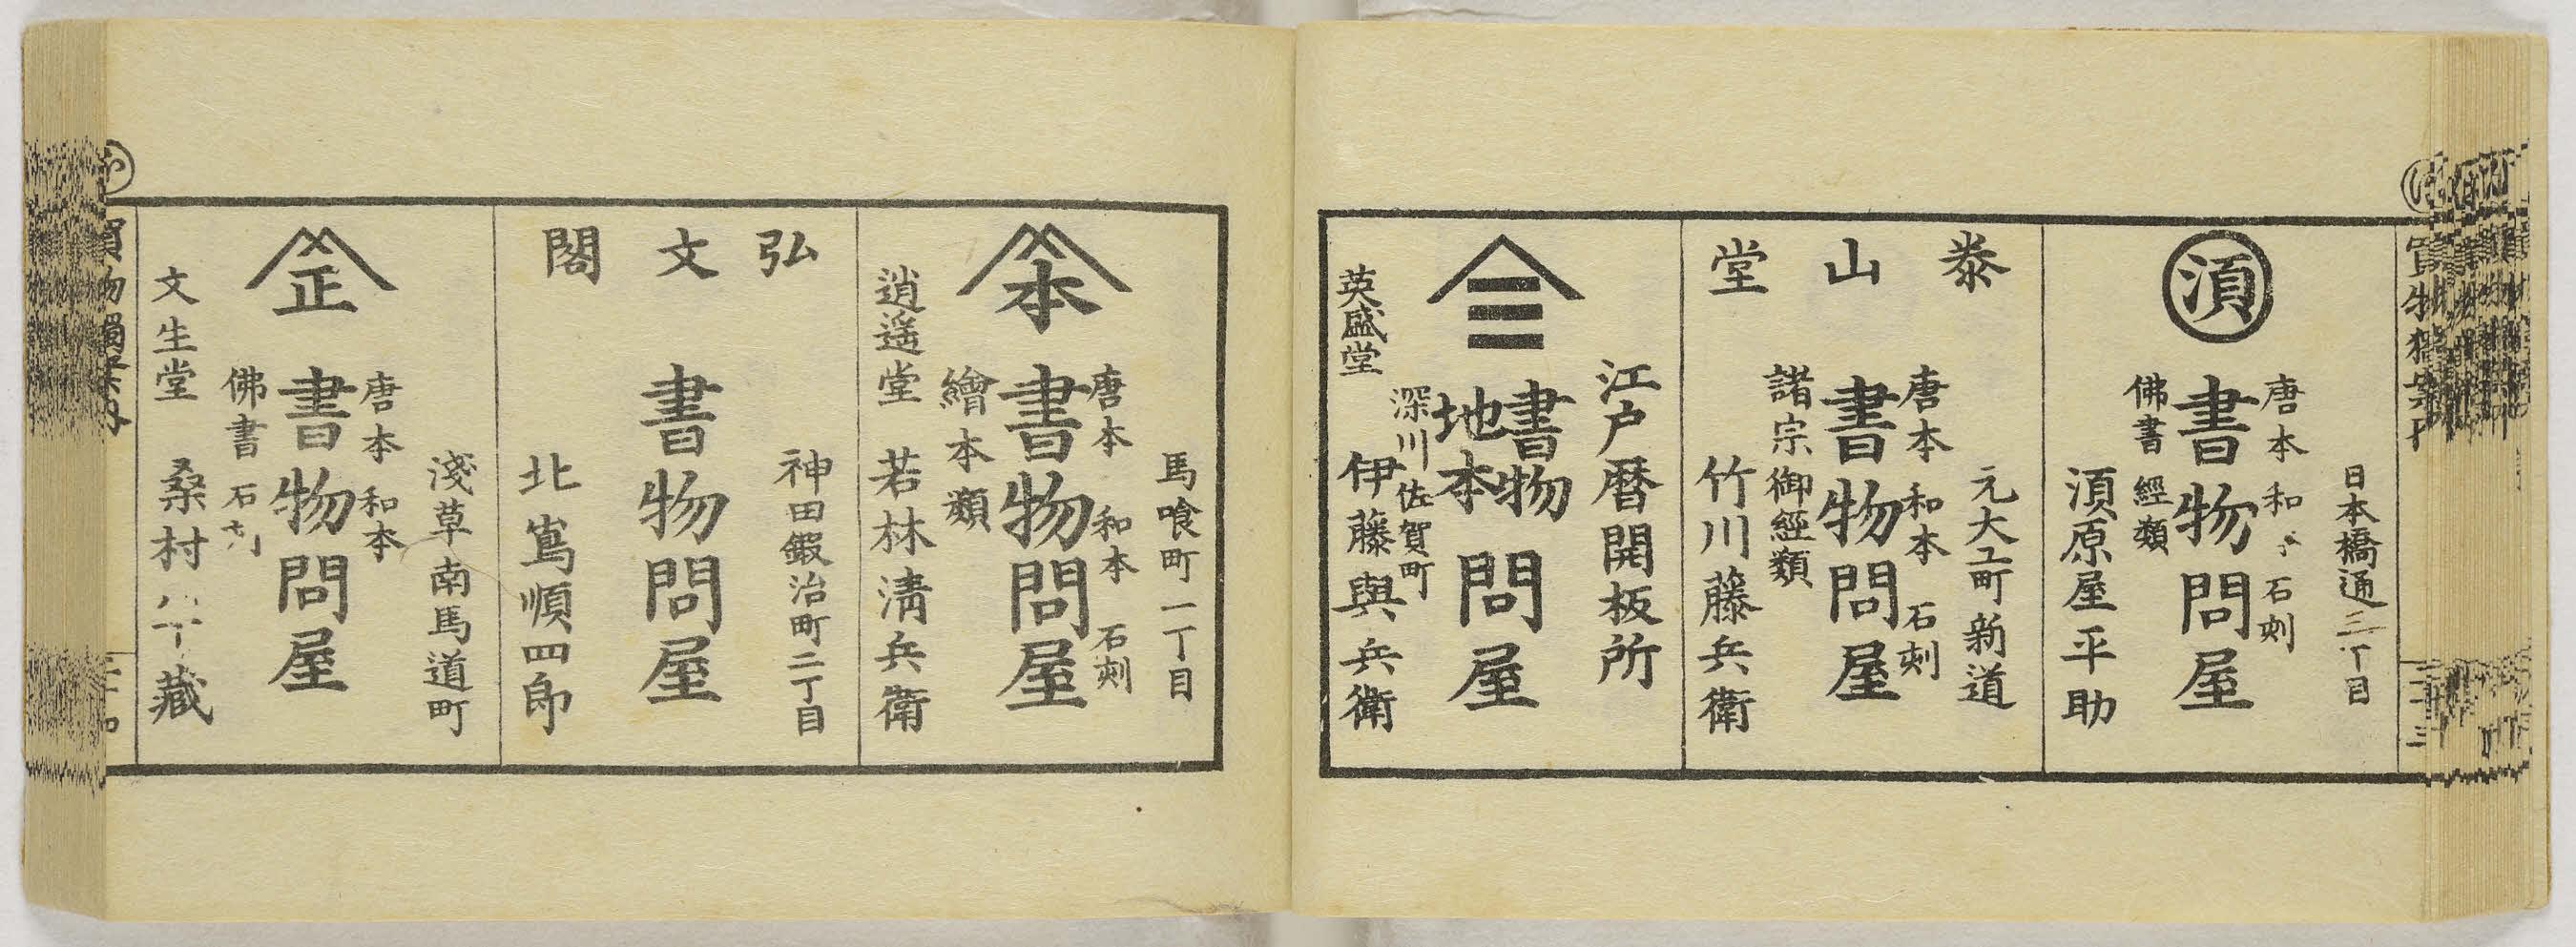 日本橋通三丁目
須
唐本 和本 石刻
書物問屋
佛書 經類
須原屋平助
泰山堂
元大工町新道
唐本 和本 石刻
書物問屋
諸宗御經類
竹川藤兵衛
江戸暦開板所
三
書物
地本
問屋
深川佐賀町
英盛堂
伊藤與兵衛
馬喰町一丁目
本
唐本 和本 石刻
書物問屋
繪本類
逍遥堂 若林淸兵衛
弘文閣
神田鍜冶町二丁目
書物問屋
北嶌順四郎
淺草南馬道町
正
唐本 和本
書物問屋
佛書 石刻
文生堂 桑村 藏